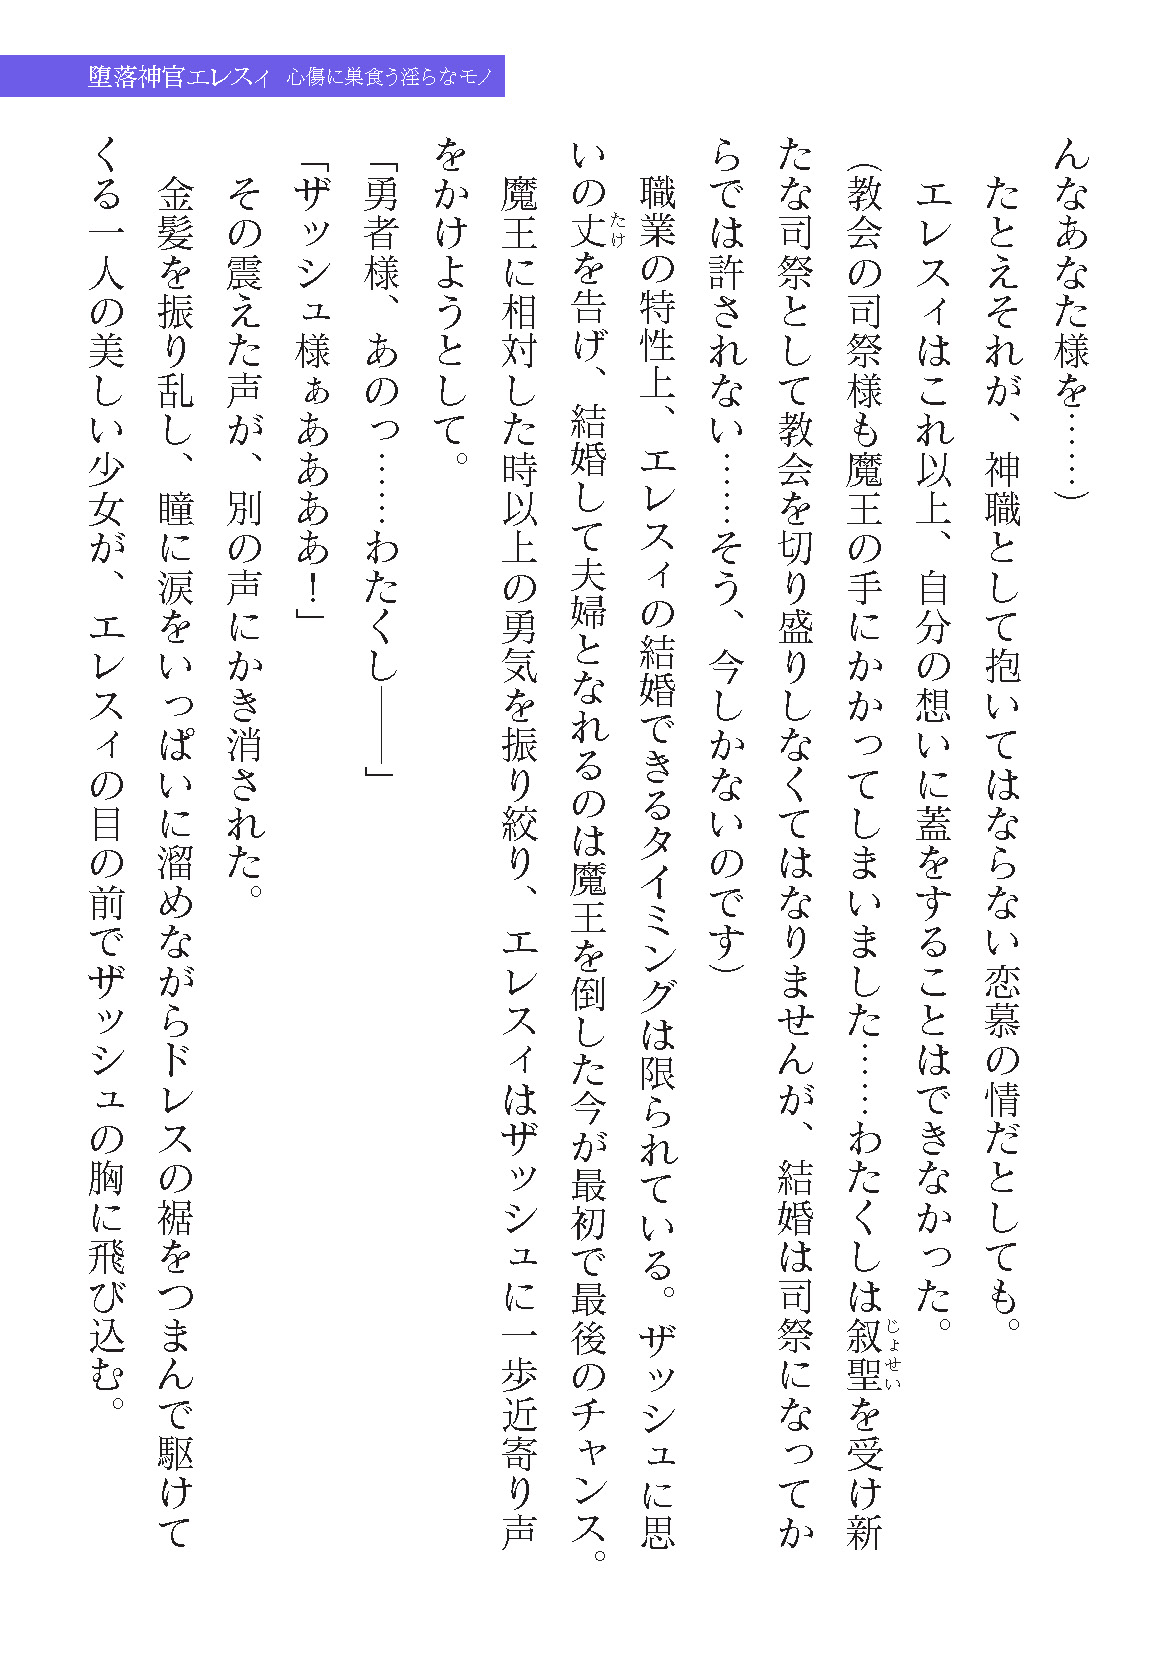 堕落神官エレスィ 心傷に巣食う淫らなモノ
んなあなた様を……）
たとえそれが、神職として抱いてはならない恋慕の情だとしても。
エレスィはこれ以上、自分の想いに蓋をすることはできなかった。
（教会の司祭様も魔王の手にかかってしまいました……わたくしは叙聖じょせいを受け新
たな司祭として教会を切り盛りしなくてはなりませんが、結婚は司祭になってか
らでは許されない……そう、今しかないのです）
職業の特性上、エレスィの結婚できるタイミングは限られている。ザッシュに思
いの丈たけを告げ、結婚して夫婦となれるのは魔王を倒した今が最初で最後のチャンス。
魔王に相対した時以上の勇気を振り絞り、エレスィはザッシュに一歩近寄り声
をかけようとして。
「勇者様、あのっ……わたくし――」
「ザッシュ様ぁああああ！」
その震えた声が、別の声にかき消された。
金髪を振り乱し、瞳に涙をいっぱいに溜めながらドレスの裾をつまんで駆けて
くる一人の美しい少女が、エレスィの目の前でザッシュの胸に飛び込む。